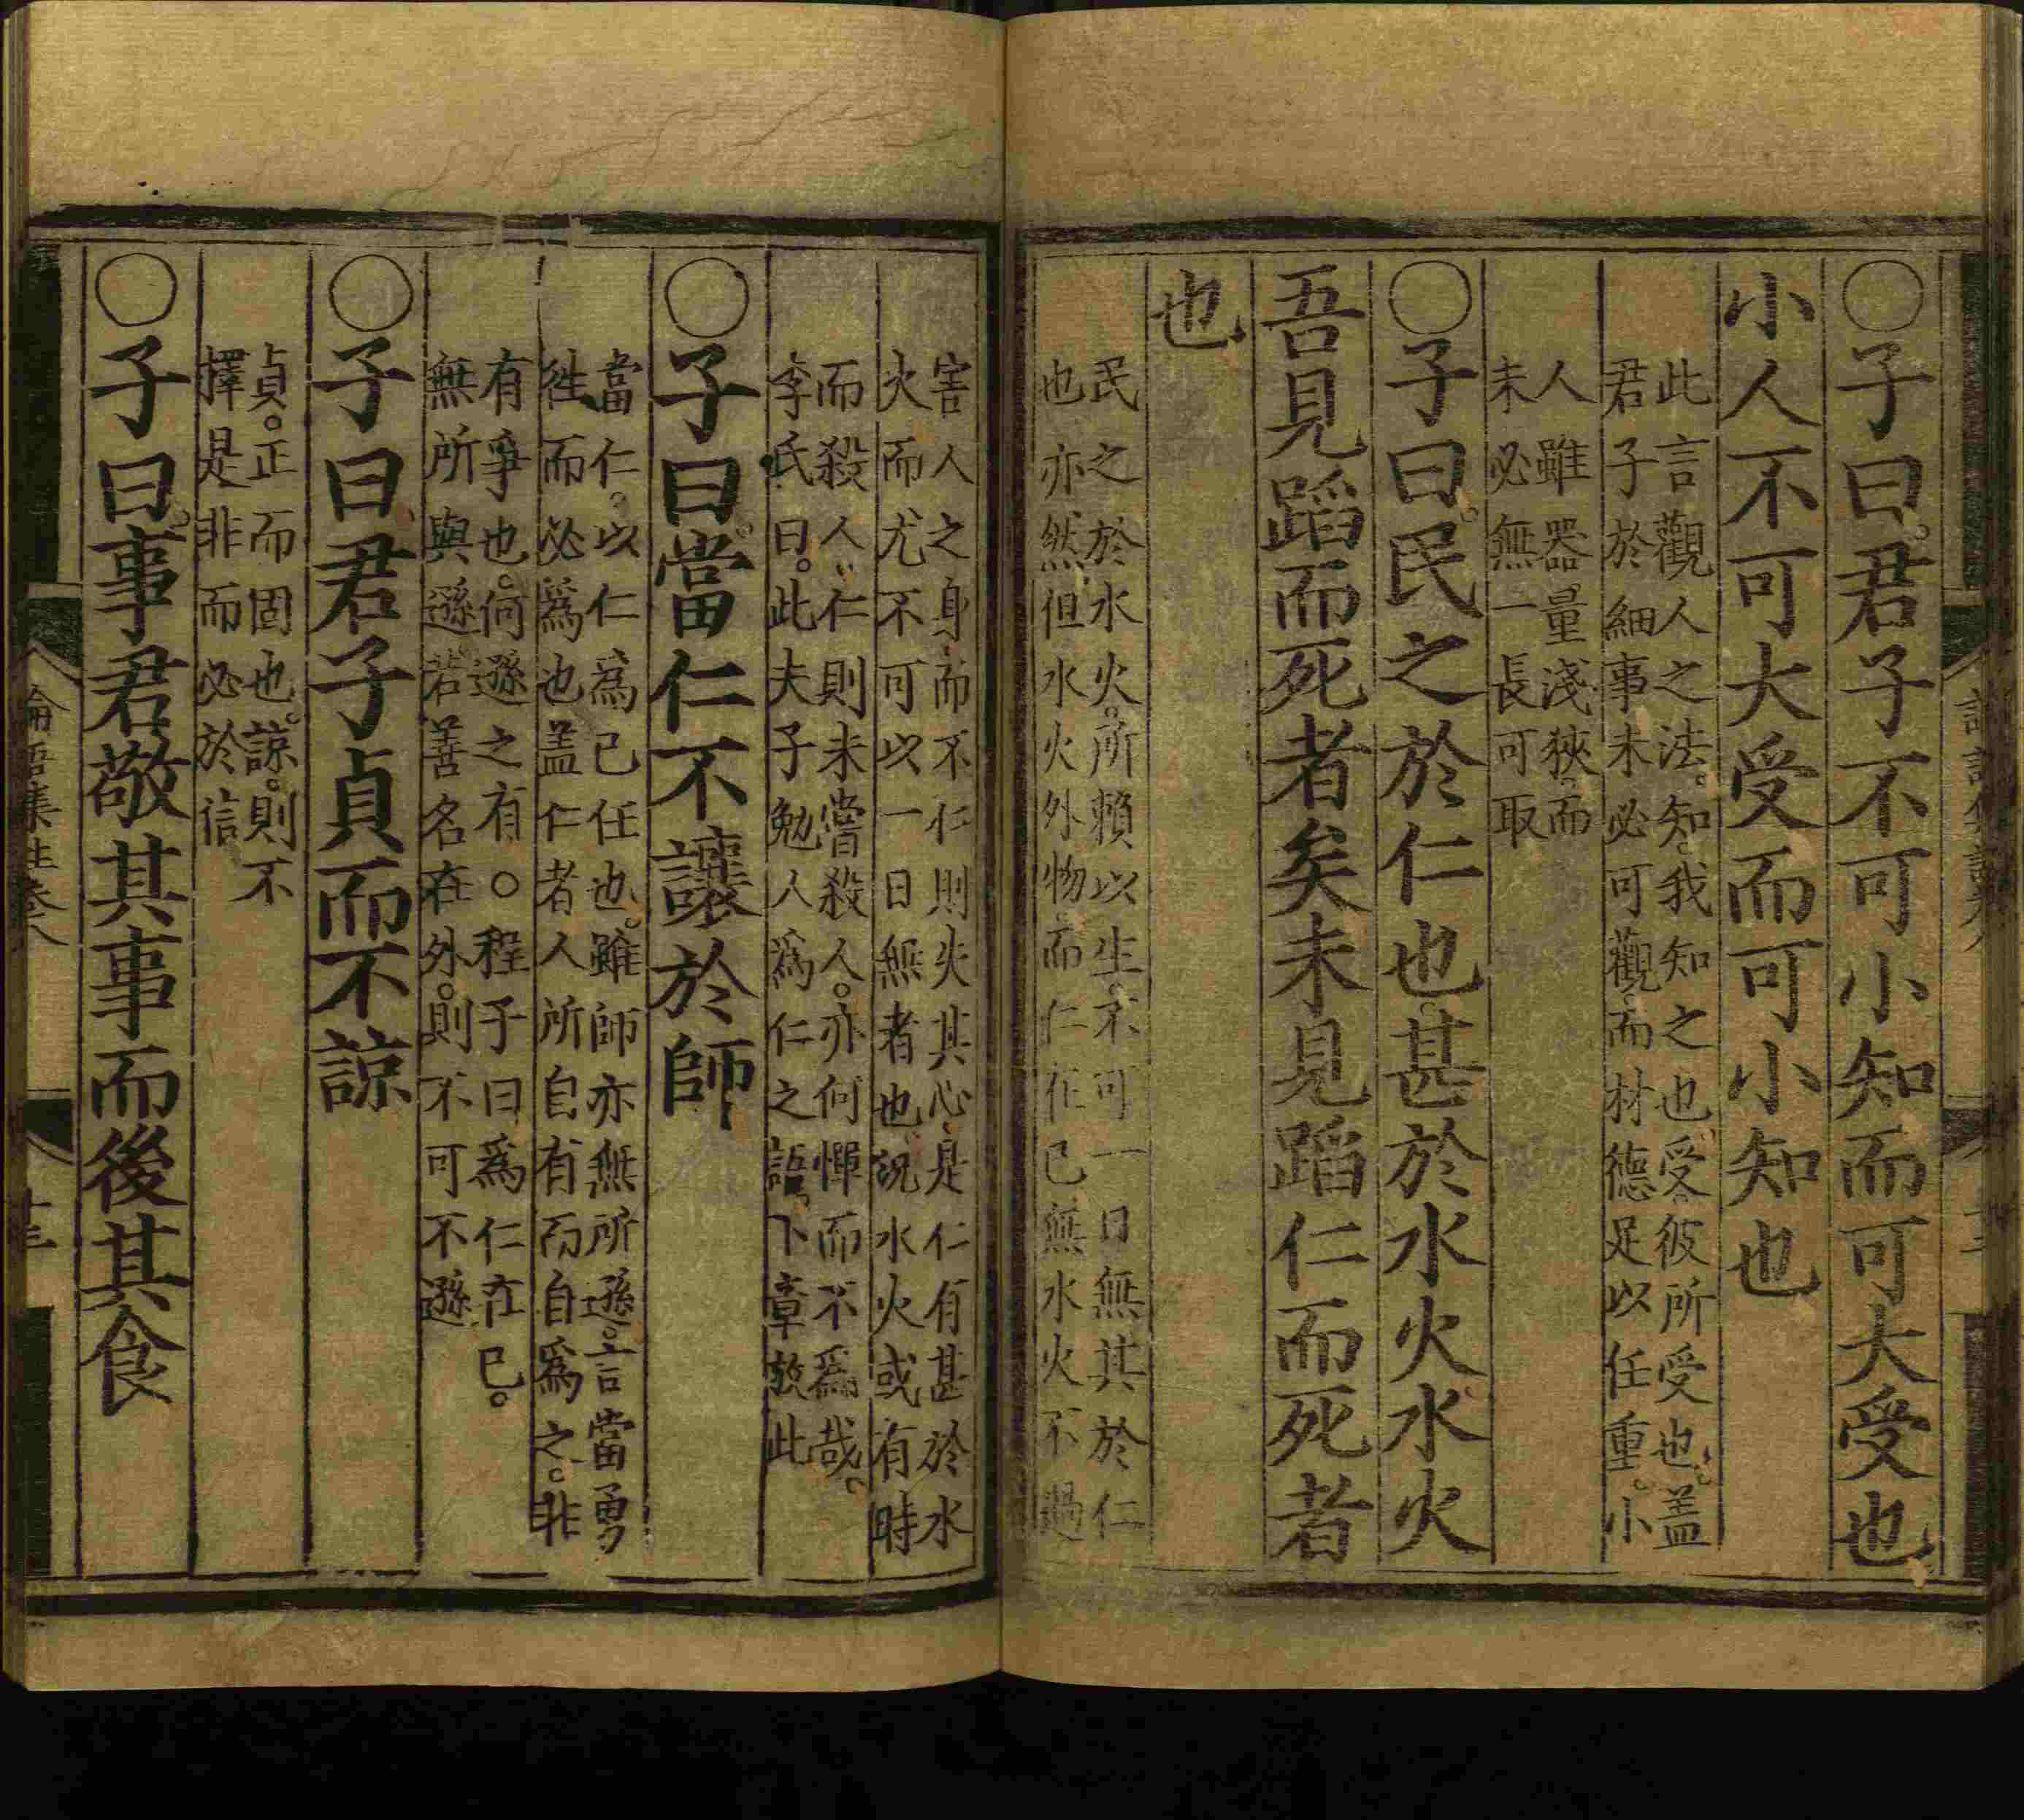 ○子曰。君子不可小知而可大受也
小人不可大受而可小知也
此言觀人之法。知。我知之也。受。彼所受也。盖
君子於細事未必可觀。而材德足以任重。小
人雖器量淺狹。而
未必無一長可取
○子曰。民之於仁也。甚於水火水火
吾見蹈而死者矣未見蹈仁而死者
也
民之於水火。所賴以生。不可一日無其於仁
也亦然。但水火外物。而仁在已無水火不過
害人之身。而不仁則失其心。是仁有甚於水
火而尤不可以一日無者也。况水火或有時
而殺人。仁則未嘗殺人。亦何憚而不爲哉。
李氏曰。此夫子勉人爲仁之語。下章放此
○子曰。當仁不讓於師
當仁。以仁爲己任也。雖師亦無所遜。言當勇
徃而必爲也盖仁者人所自有而自爲之。非
有爭也。何遜之有○程子曰爲仁在已。
無所與遜。若善名在外。則不可不遜
○子曰君子貞而不諒
貞。正而固也。諒。則不
擇是非而必於信
○子曰。事君敬其事而後其食
論語集註卷八
十三